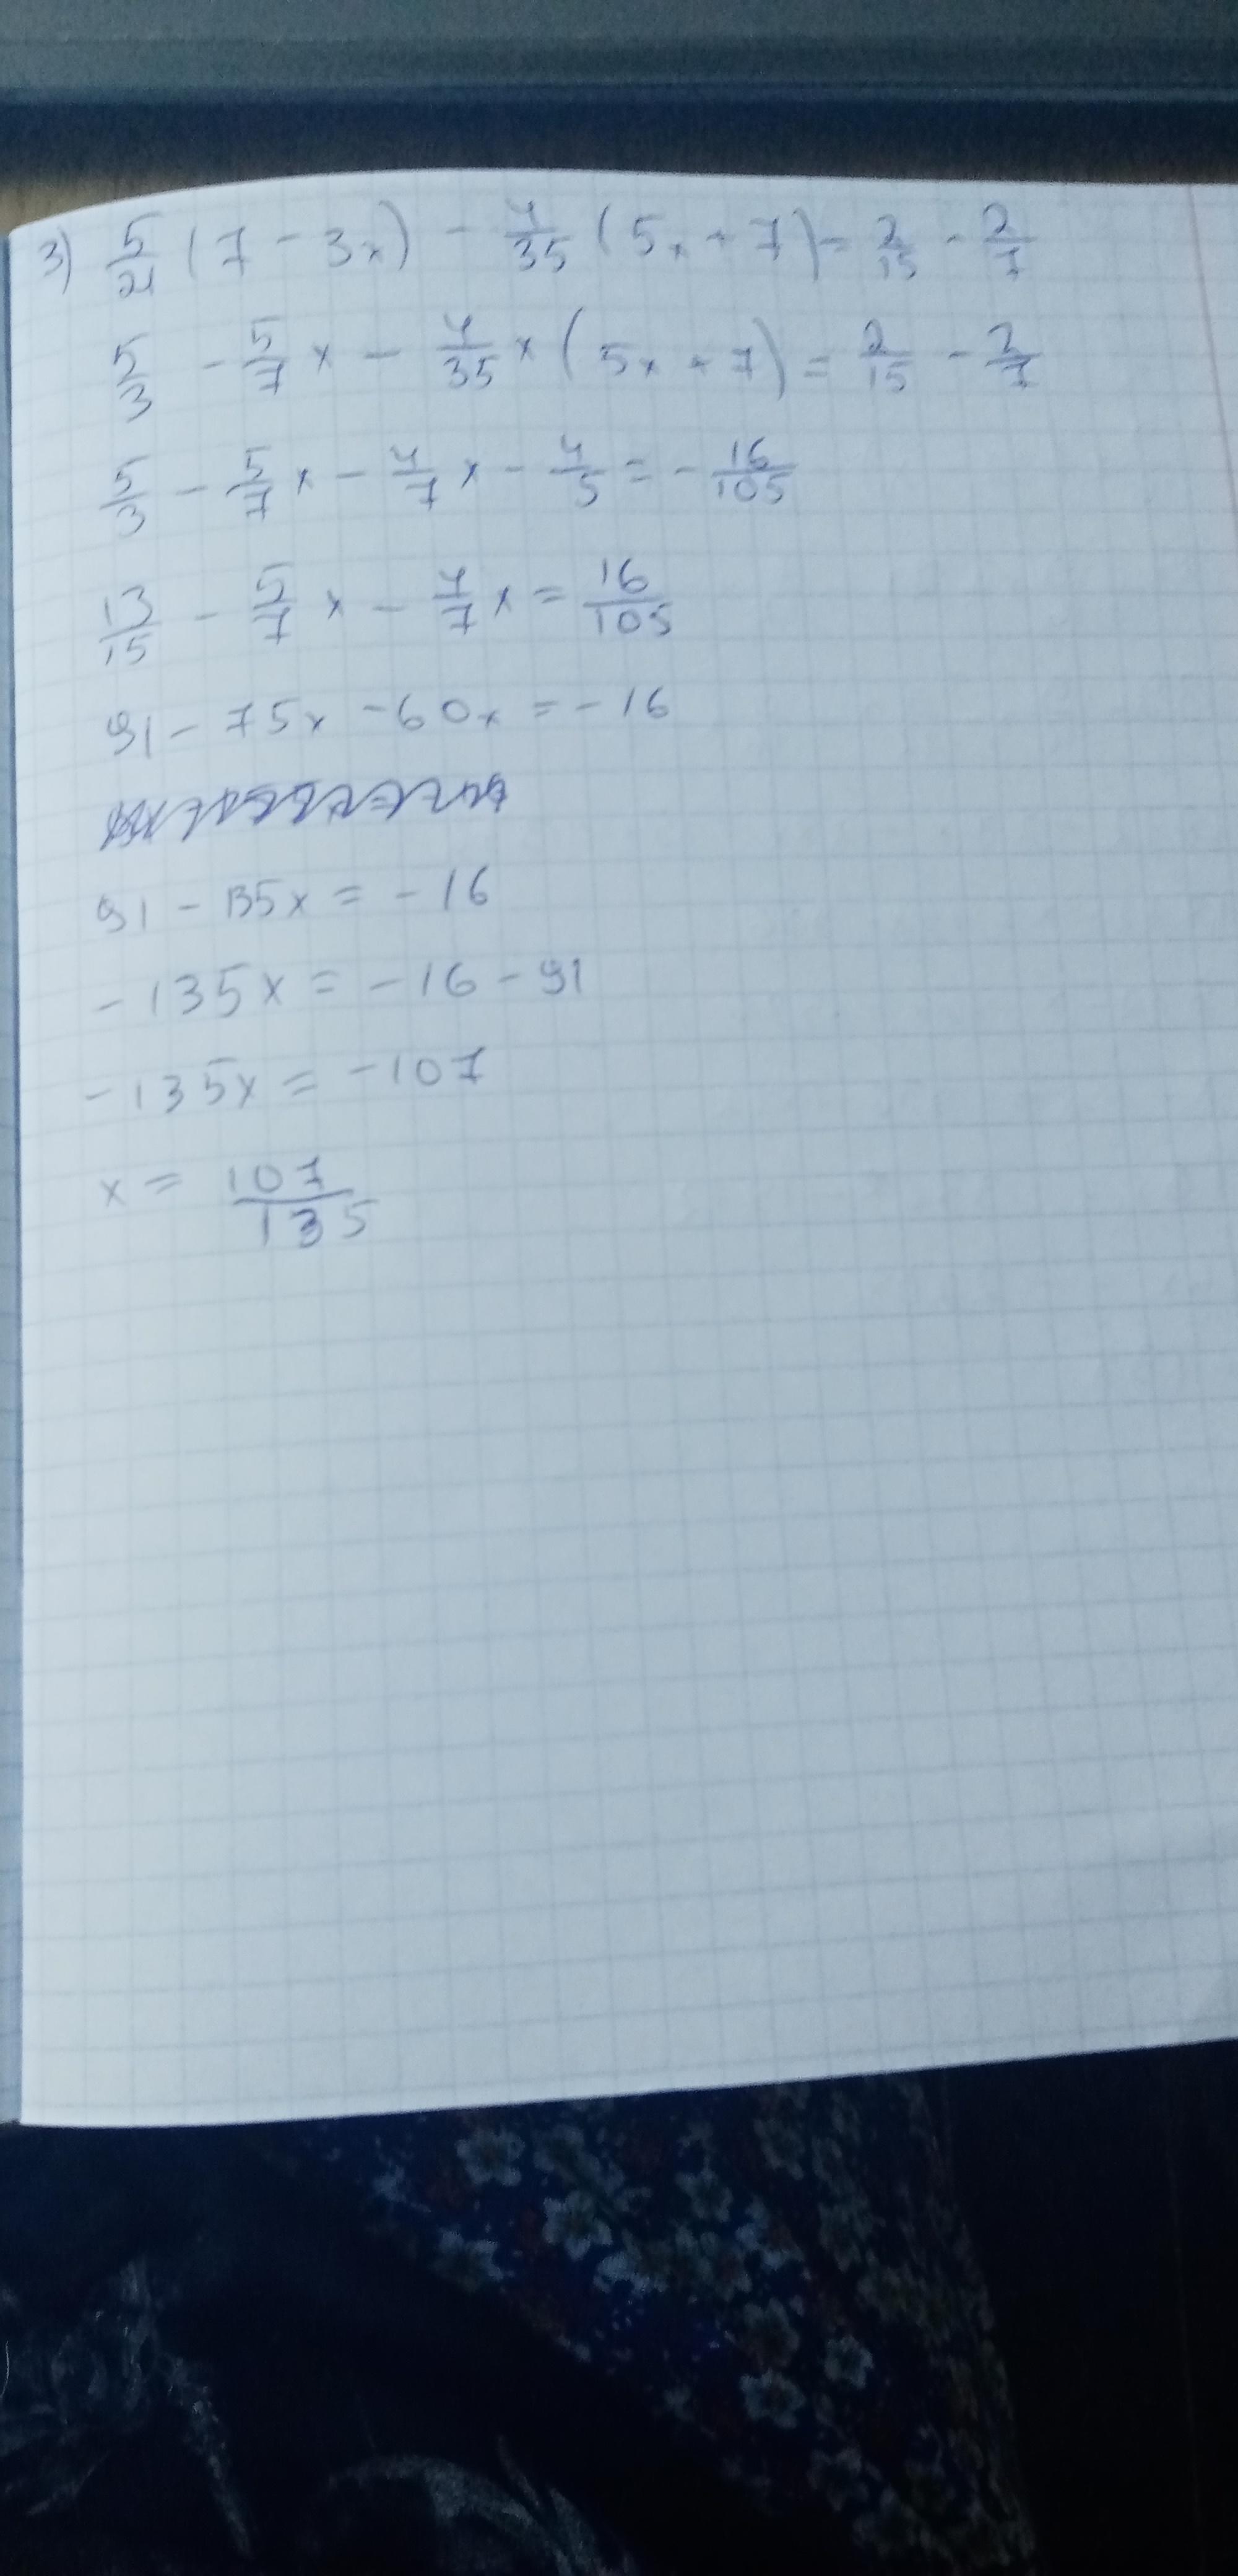 3) 5/21 (7 - 3x) - 4/35 (5x + 7) = 2/15 - 2/7
5/3 - 5/7 x - 4/35 × (5x + 7) = 2/15 - 2/7
5/3 - 5/7 x - 4/7 x - 4/5 = - 16/105
13/15 - 5/7 x - 4/7 x = 16/105
91 - 75x - 60x = - 16
91 - 135x = - 16
- 135x = - 16 - 91
- 135x = - 107
x = 107/135